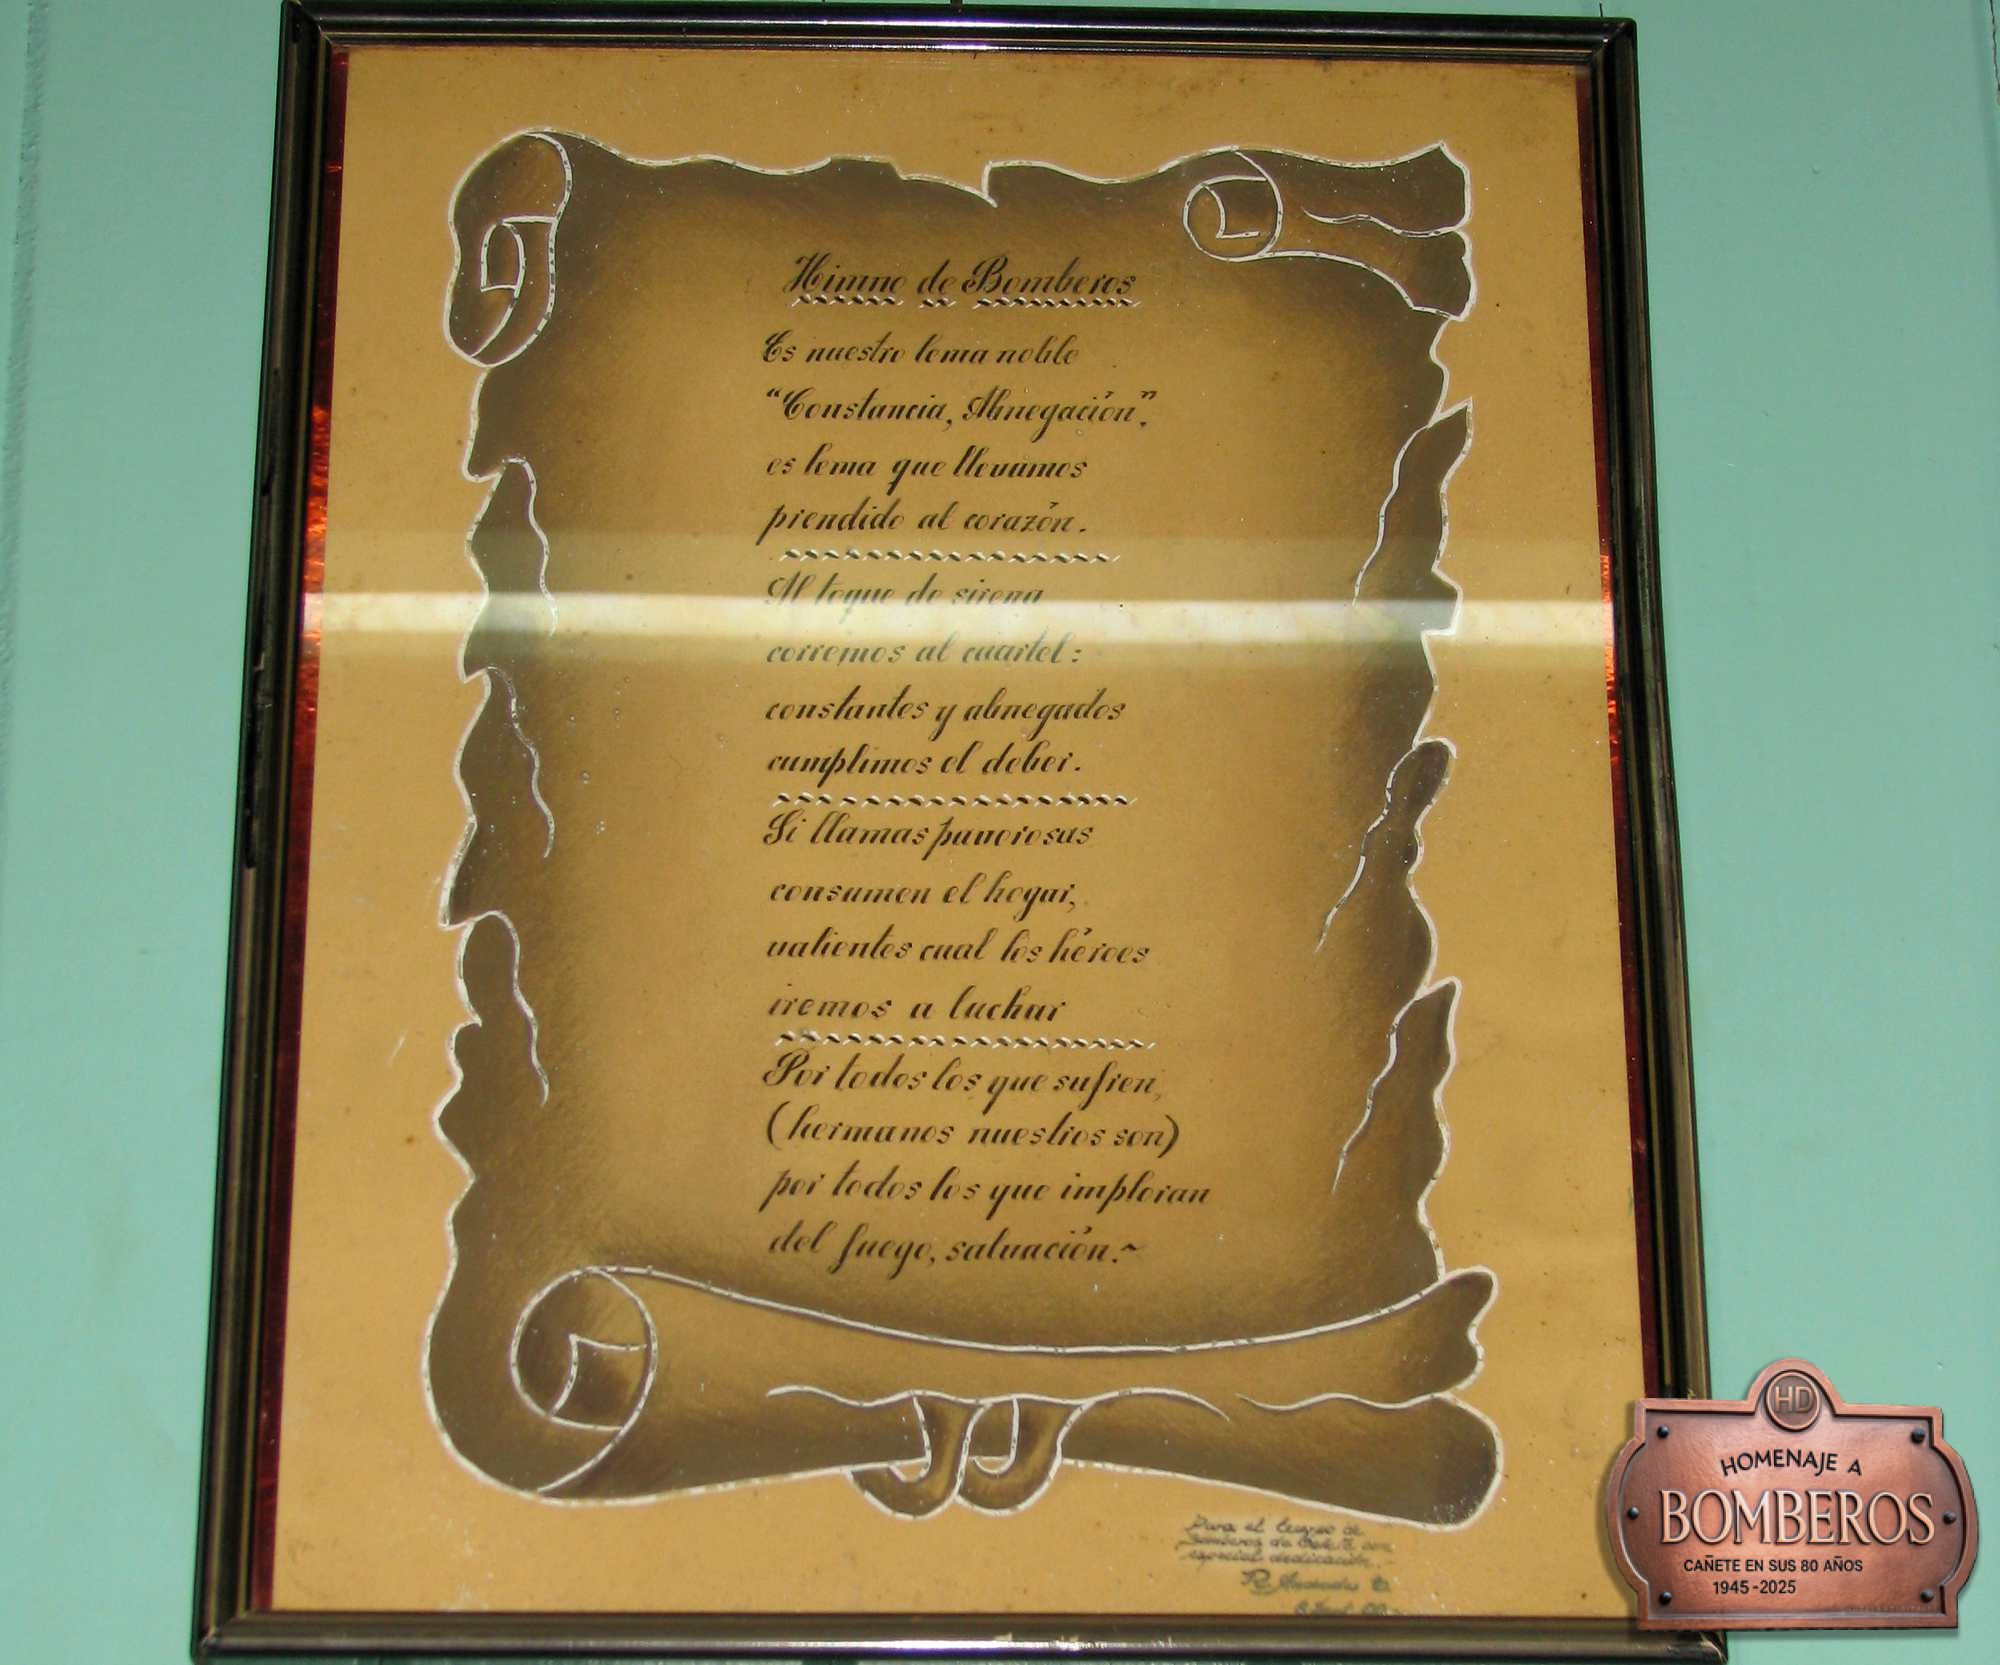 Himno de Bomberos
Es nuestro lema noble
"Constancia, Abnegación",
es lema que llevamos
prendido al corazón.
Al toque de sirena
corremos al cuartel:
constantes y abnegados
cumplimos el deber.
Si llamas pavorosas
consumen el hogar,
valientes cual los héroes
iremos a luchar
Por todos los que sufren,
(hermanos nuestros son)
por todos los que imploran
del fuego, salvación.~
Para el Cuerpo de
Bomberos de con
especial dedicación.
R.
HD
HOMENAJE A
BOMBEROS
CAÑETE EN SUS 80 AÑOS
1945-2025